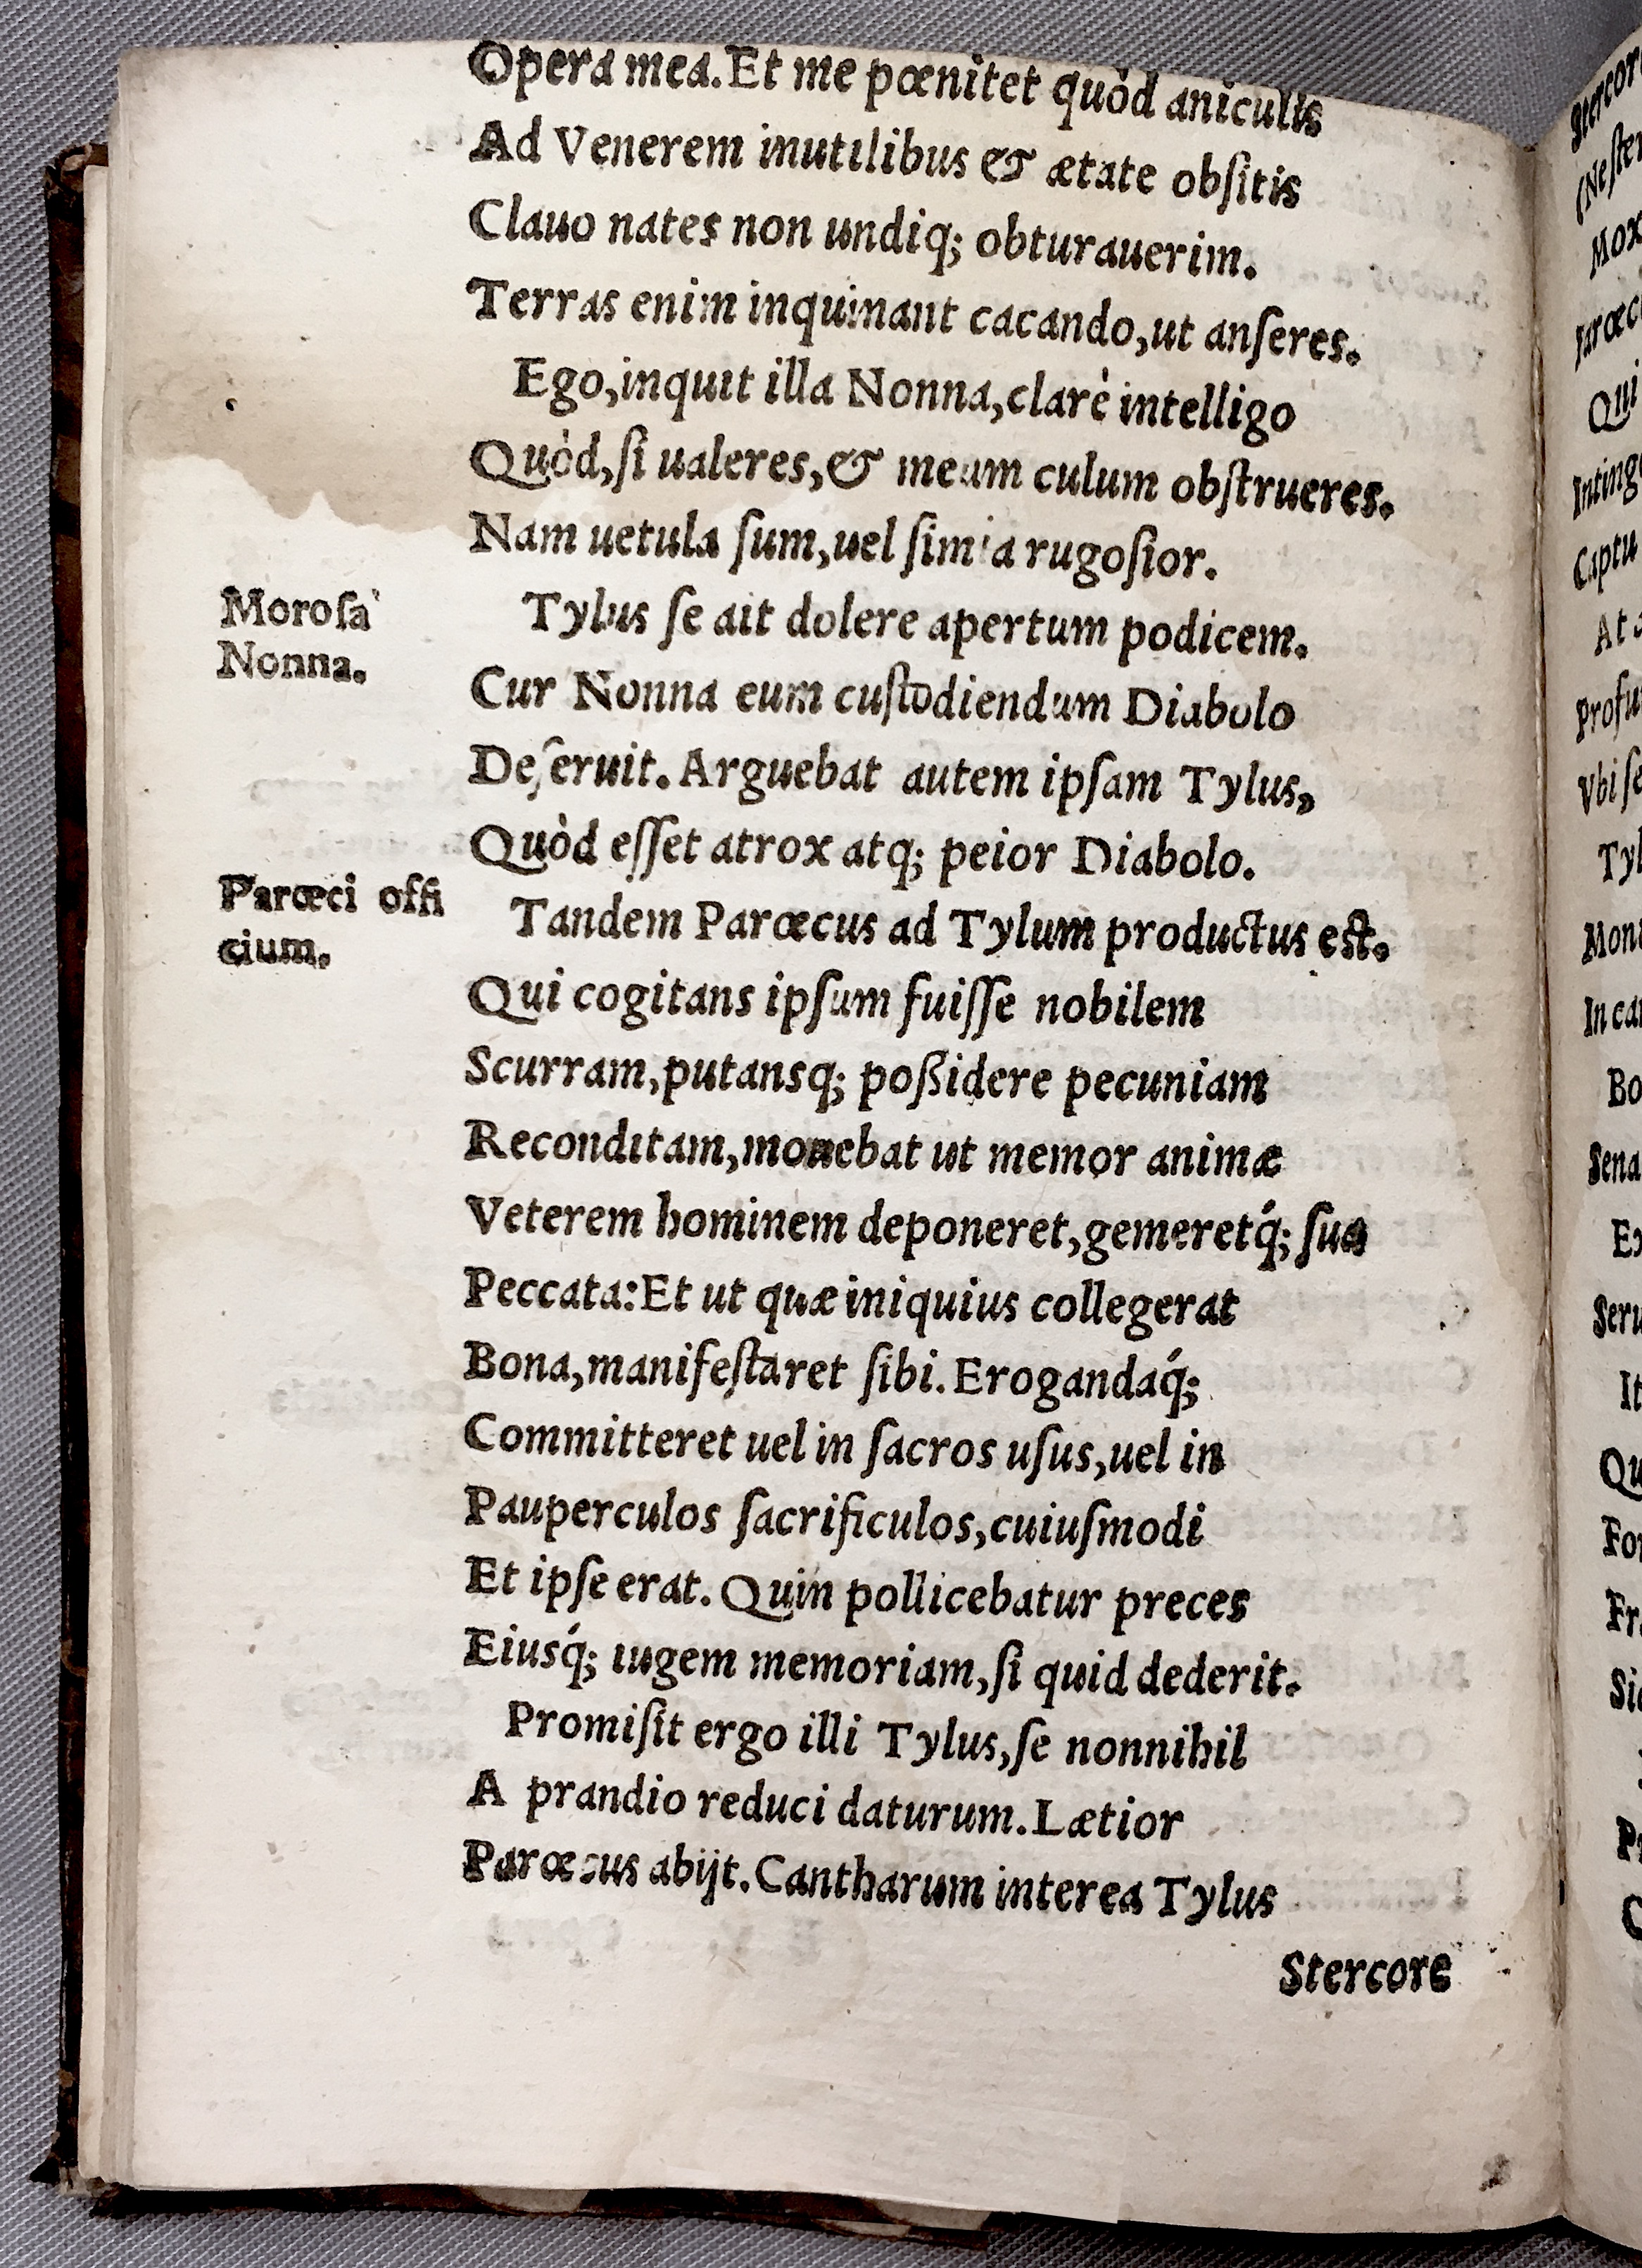 Opera mea. Et me pœnitet quòd aniculis
Ad Venerem inutilibus & ætate obſitis
Clauo nates non undiq; obturauerim.
Terras enim inquinant cacando, ut anſeres.
Ego, inquit illa Nonna, clarè intelligo
Quòd, ſi ualeres, & meum culum obſtrueres.
Nam uetula ſum, uel ſimia rugoſior.
Moroſa
Nonna.
Tylus ſe ait dolere apertum podicem.
Cur Nonna eum cuſtodiendum Diabolo
Deſeruit. Arguebat autem ipſam Tylus,
Quòd eſſet atrox atq; peior Diabolo.
Parœci offi
cium.
Tandem Parœcus ad Tylum productus eſt.
Qui cogitans ipſum fuiſſe nobilem
Scurram, putansq; poßidere pecuniam
Reconditam, monebat ut memor animæ
Veterem hominem deponeret, gemeretq́; ſua
Peccata: Et ut quæ iniquius collegerat
Bona, manifeſtaret ſibi. Erogandaq́;
Committeret uel in ſacros uſus, uel in
Pauperculos ſacrificulos, cuiuſmodi
Et ipſe erat. Quin pollicebatur preces
Eiusq́; iugem memoriam, ſi quid dederit.
Promiſit ergo illi Tylus, ſe nonnihil
A prandio reduci daturum. Lætior
Parœcus abijt. Cantharum interea Tylus
Stercore